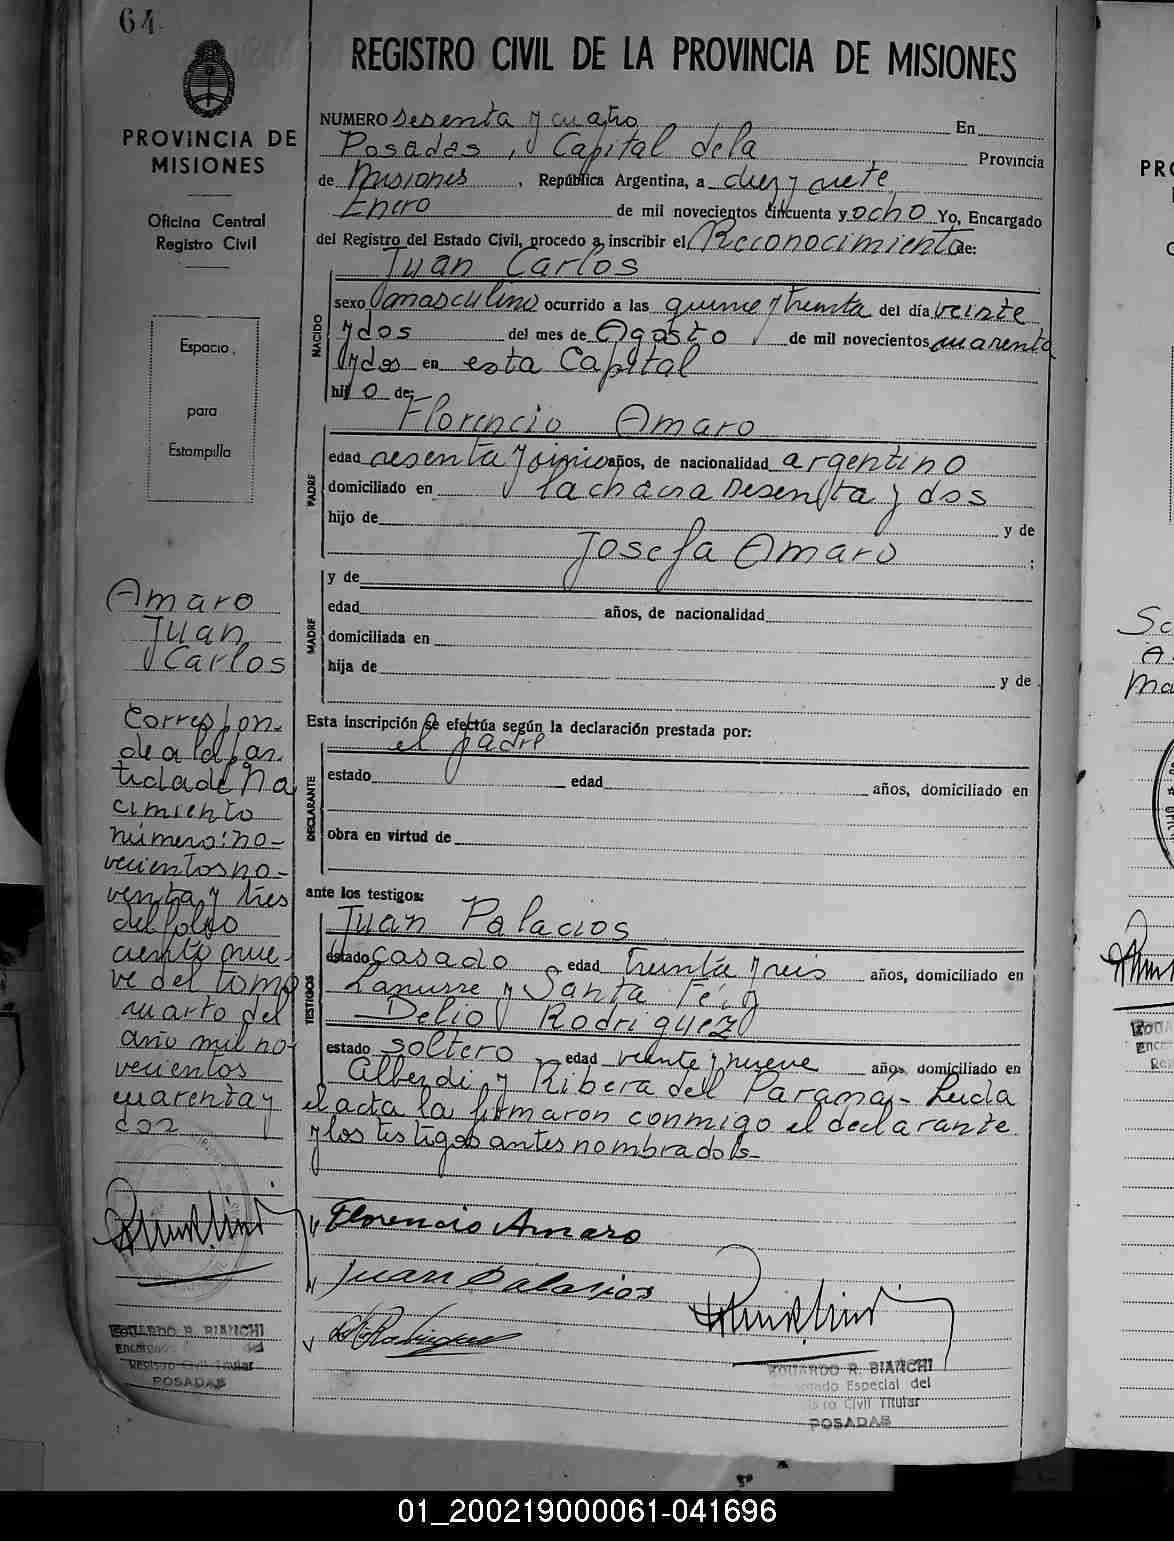 64
PROVINCIA DE
MISIONES
Oficina Central
Registro Civil
Espacio
para
Estampilla
Amaro
Juan
Carlos
Correspon-
de a la par-
tida de Na
cimiento
número: no-
vecientos no-
venta y tres
del folio
ciento nue-
ve del tomo
cuarto del
año mil no-
vecientos
cuarenta y
dos
EDUARDO R. BIANCHI
Encargado del
Registro Civil Titular
POSADAS
REGISTRO CIVIL DE LA PROVINCIA DE MISIONES
NUMERO sesenta y cuatro En
Posadas, Capital de la Provincia
de Misiones, República Argentina, a diez y siete
Enero de mil novecientos cincuenta y ocho Yo, Encargado
del Registro del Estado Civil, procedo a inscribir el Reconocimiento de:
NACIDO
Juan Carlos
sexo masculino ocurrido a las quince y treinta del día veinte
y dos del mes de Agosto de mil novecientos cuarenta
y dos en esta Capital
hijo de:
PADRE
Florencio Amaro
edad sesenta y cinco años, de nacionalidad argentino
domiciliado en la chacra sesenta y dos
hijo de y de
Josefa Amaro ;
MADRE
y de
edad años, de nacionalidad
domiciliada en
hija de y de
Esta inscripción se efectúa según la declaración prestada por:
el padre
DECLARANTE
estado edad años, domiciliado en
obra en virtud de
ante los testigos:
TESTIGOS
Juan Palacios
estado casado edad treinta y seis años, domiciliado en
Lanusse y Santa Fé, y
Delio Rodriguez
estado soltero edad veinte y nueve años, domiciliado en
Alberdi y Ribera del Parana,- Leida
el acta la firmaron conmigo el declarante
y los testigos antes nombrados-
Florencio Amaro
Juan Palacios
D. Rodriguez
EDUARDO R. BIANCHI
Especial del
Civil Titular
POSADAS
01_200219000061-041696